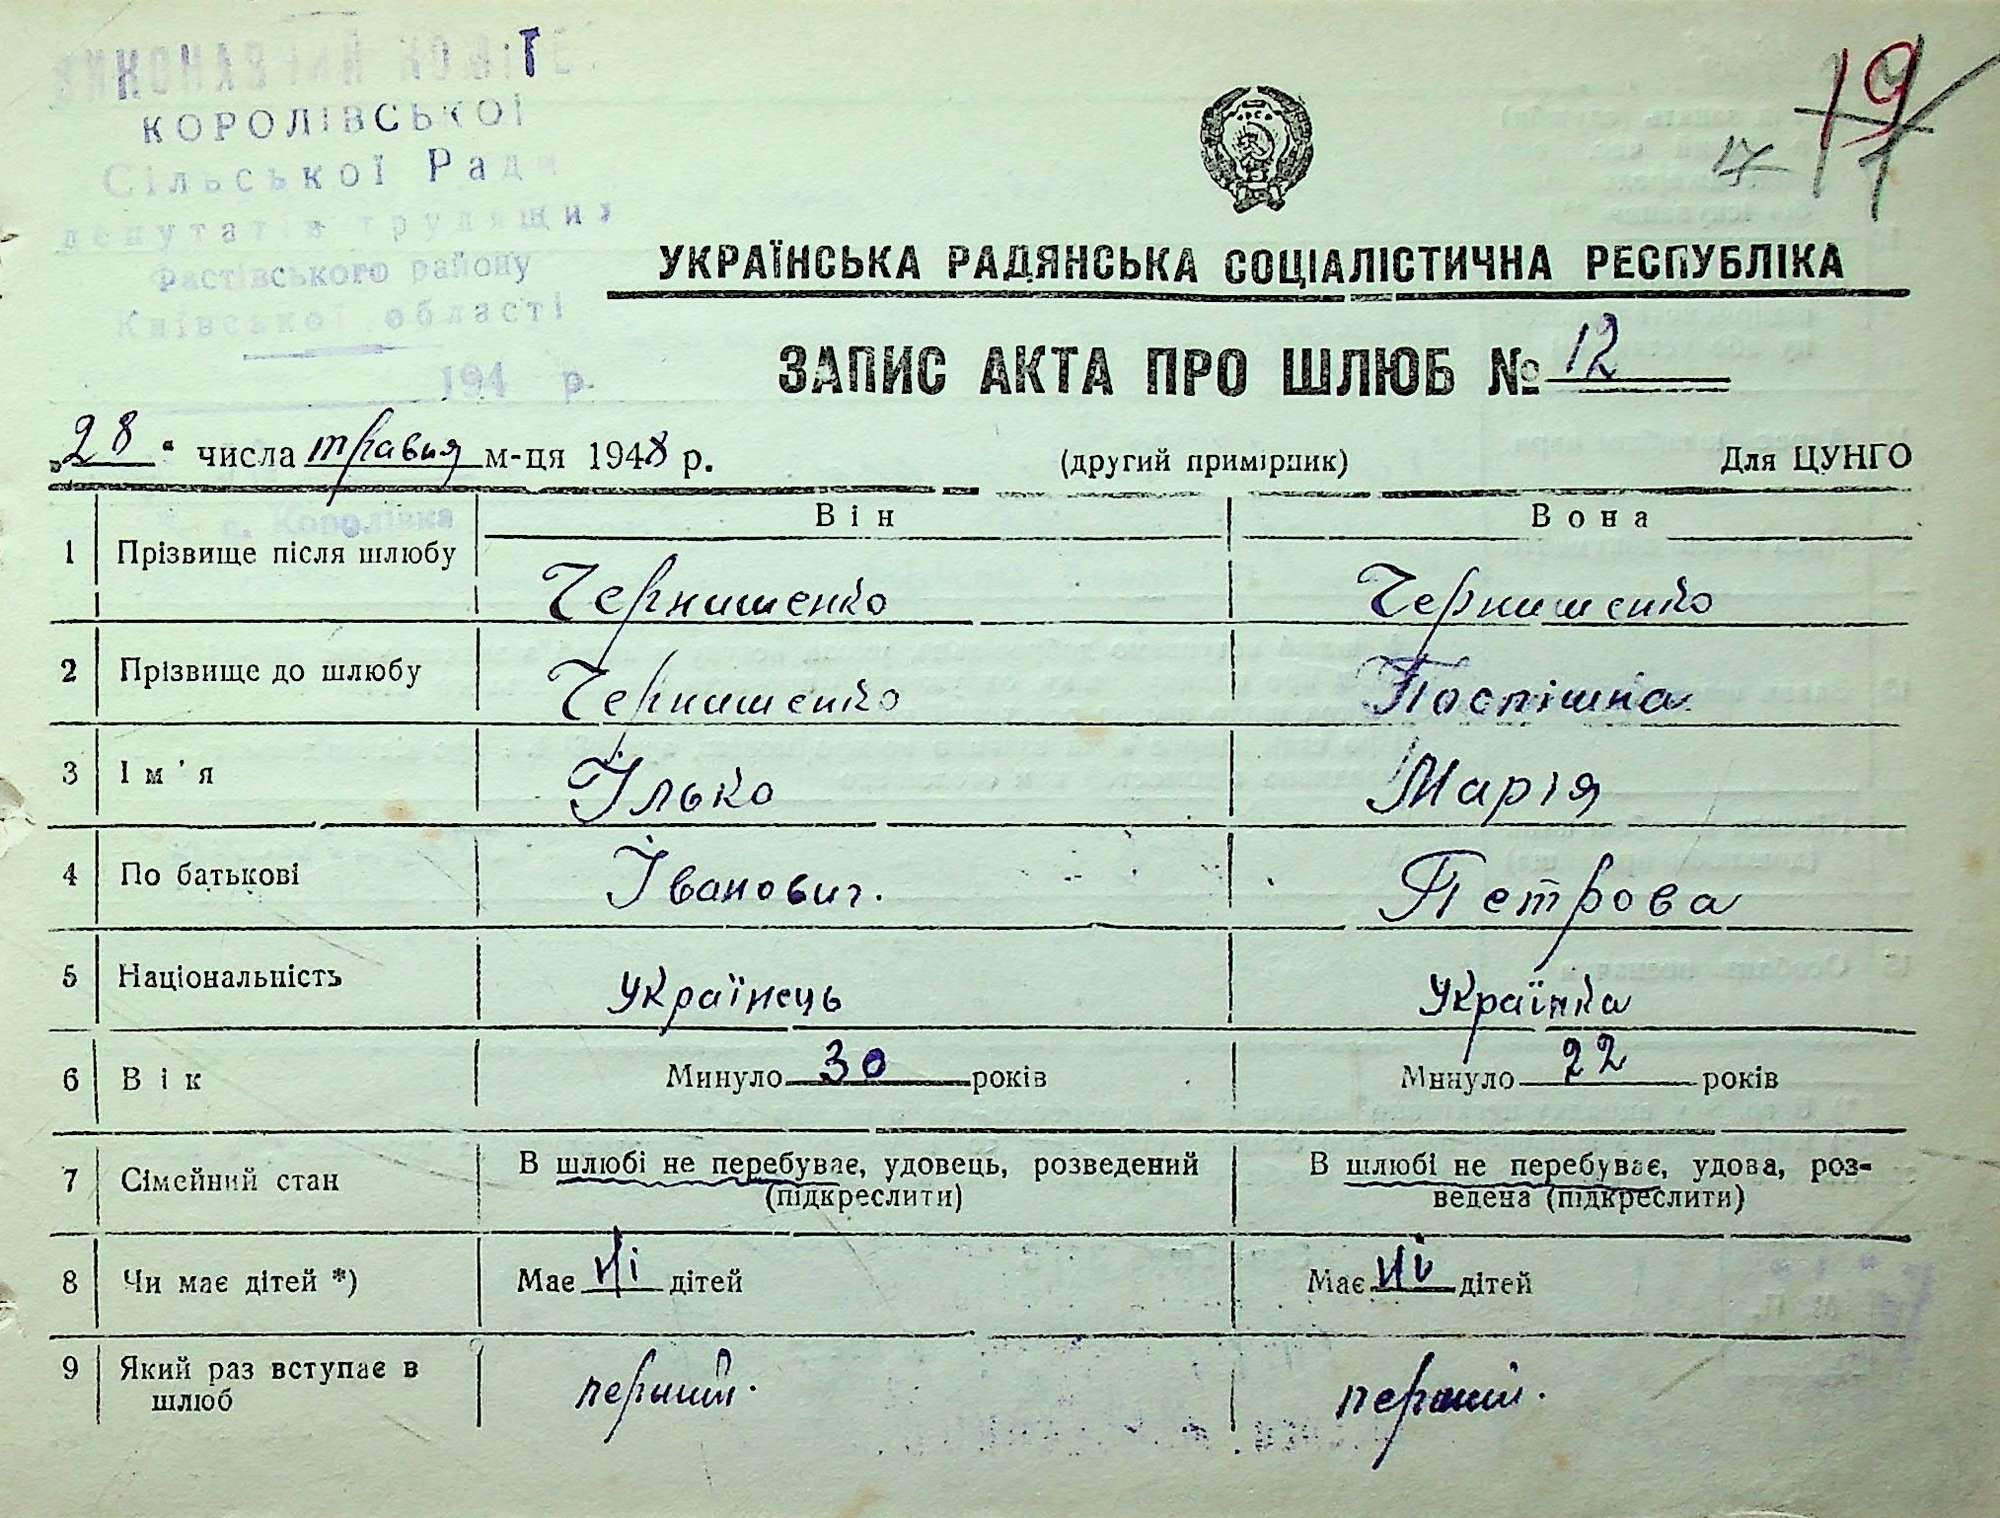 ВИКОНАВЧИЙ КОМІТЕТ
КОРОЛІВСЬКОЇ
Сільської Ради
депутатів трудящих
Фастівського району
Київської області
194 р.
с. Королівка
19
17
УКРАЇНСЬКА РАДЯНСЬКА СОЦІАЛІСТИЧНА РЕСПУБЛІКА
ЗАПИС АКТА ПРО ШЛЮБ № 12
„28“ числа травня м-ця 1948 р. (другий примірник) Для ЦУНГО
Він Вона
1 Прізвище після шлюбу Чернишенко Чернишенко
2 Прізвище до шлюбу Чернишенко Поспішна
3 Ім'я Ілько Марія
4 По батькові Іванович. Петрова
5 Національність Українець Українка
6 Вік Минуло 30 років Минуло 22 років
7 Сімейний стан В шлюбі не перебуває, удовець, розведений В шлюбі не перебуває, удова, роз-
(підкреслити) ведена (підкреслити)
8 Чи має дітей *) Має ні дітей Має ні дітей
9 Який раз вступає в перший. перший.
шлюб